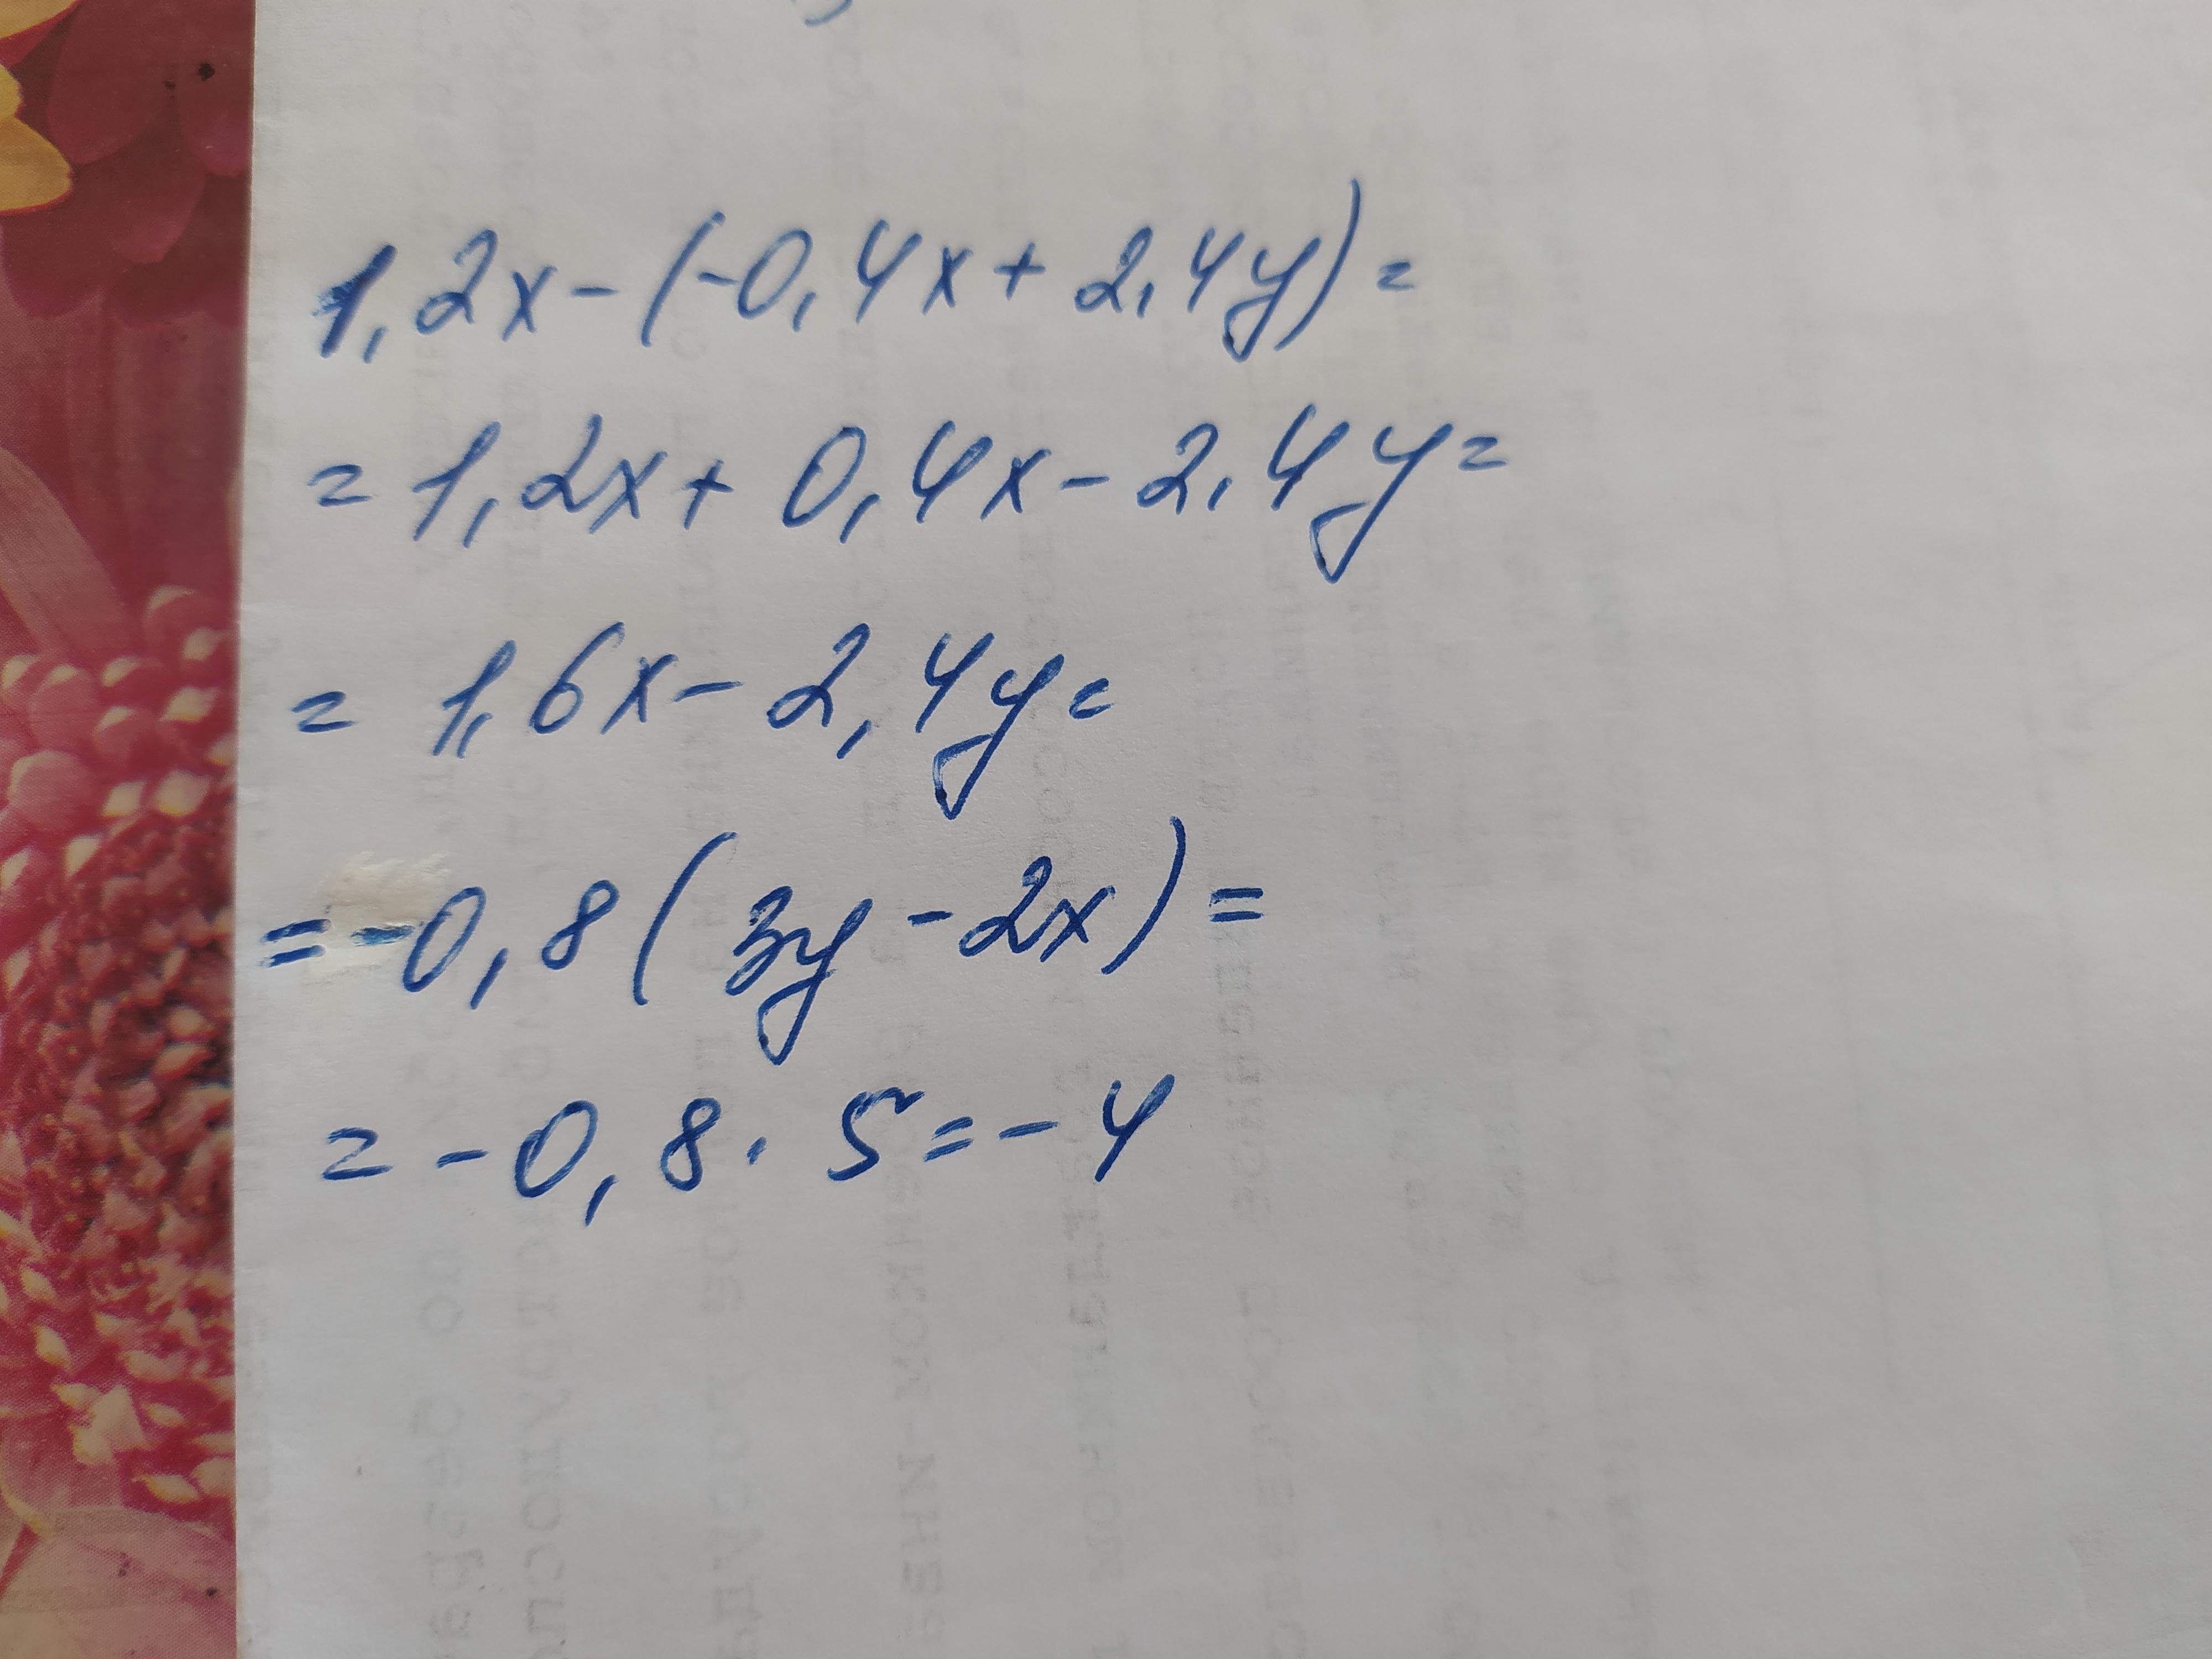 1,2x-(-0,4x+2,4y)=
=1,2x+0,4x-2,4y=
=1,6x-2,4y=
=-0,8(3y-2x)=
=-0,8·5=-4